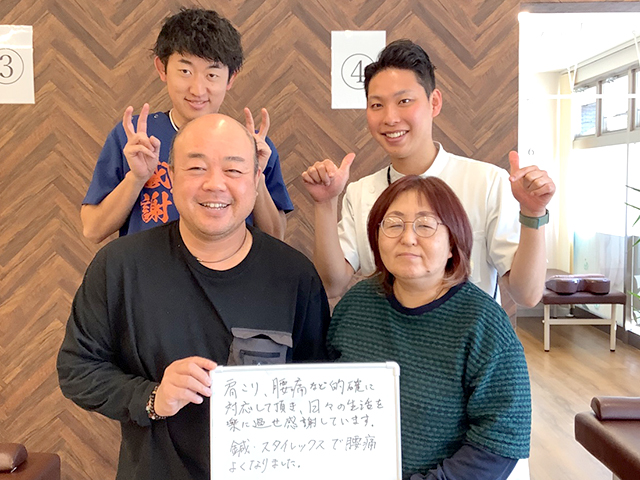 ③
④
感謝
肩こり、腰痛など的確に
対応して頂き、日々の生活を
楽に過せ感謝しています。
鍼・スタイレックスで腰痛
よくなりました。